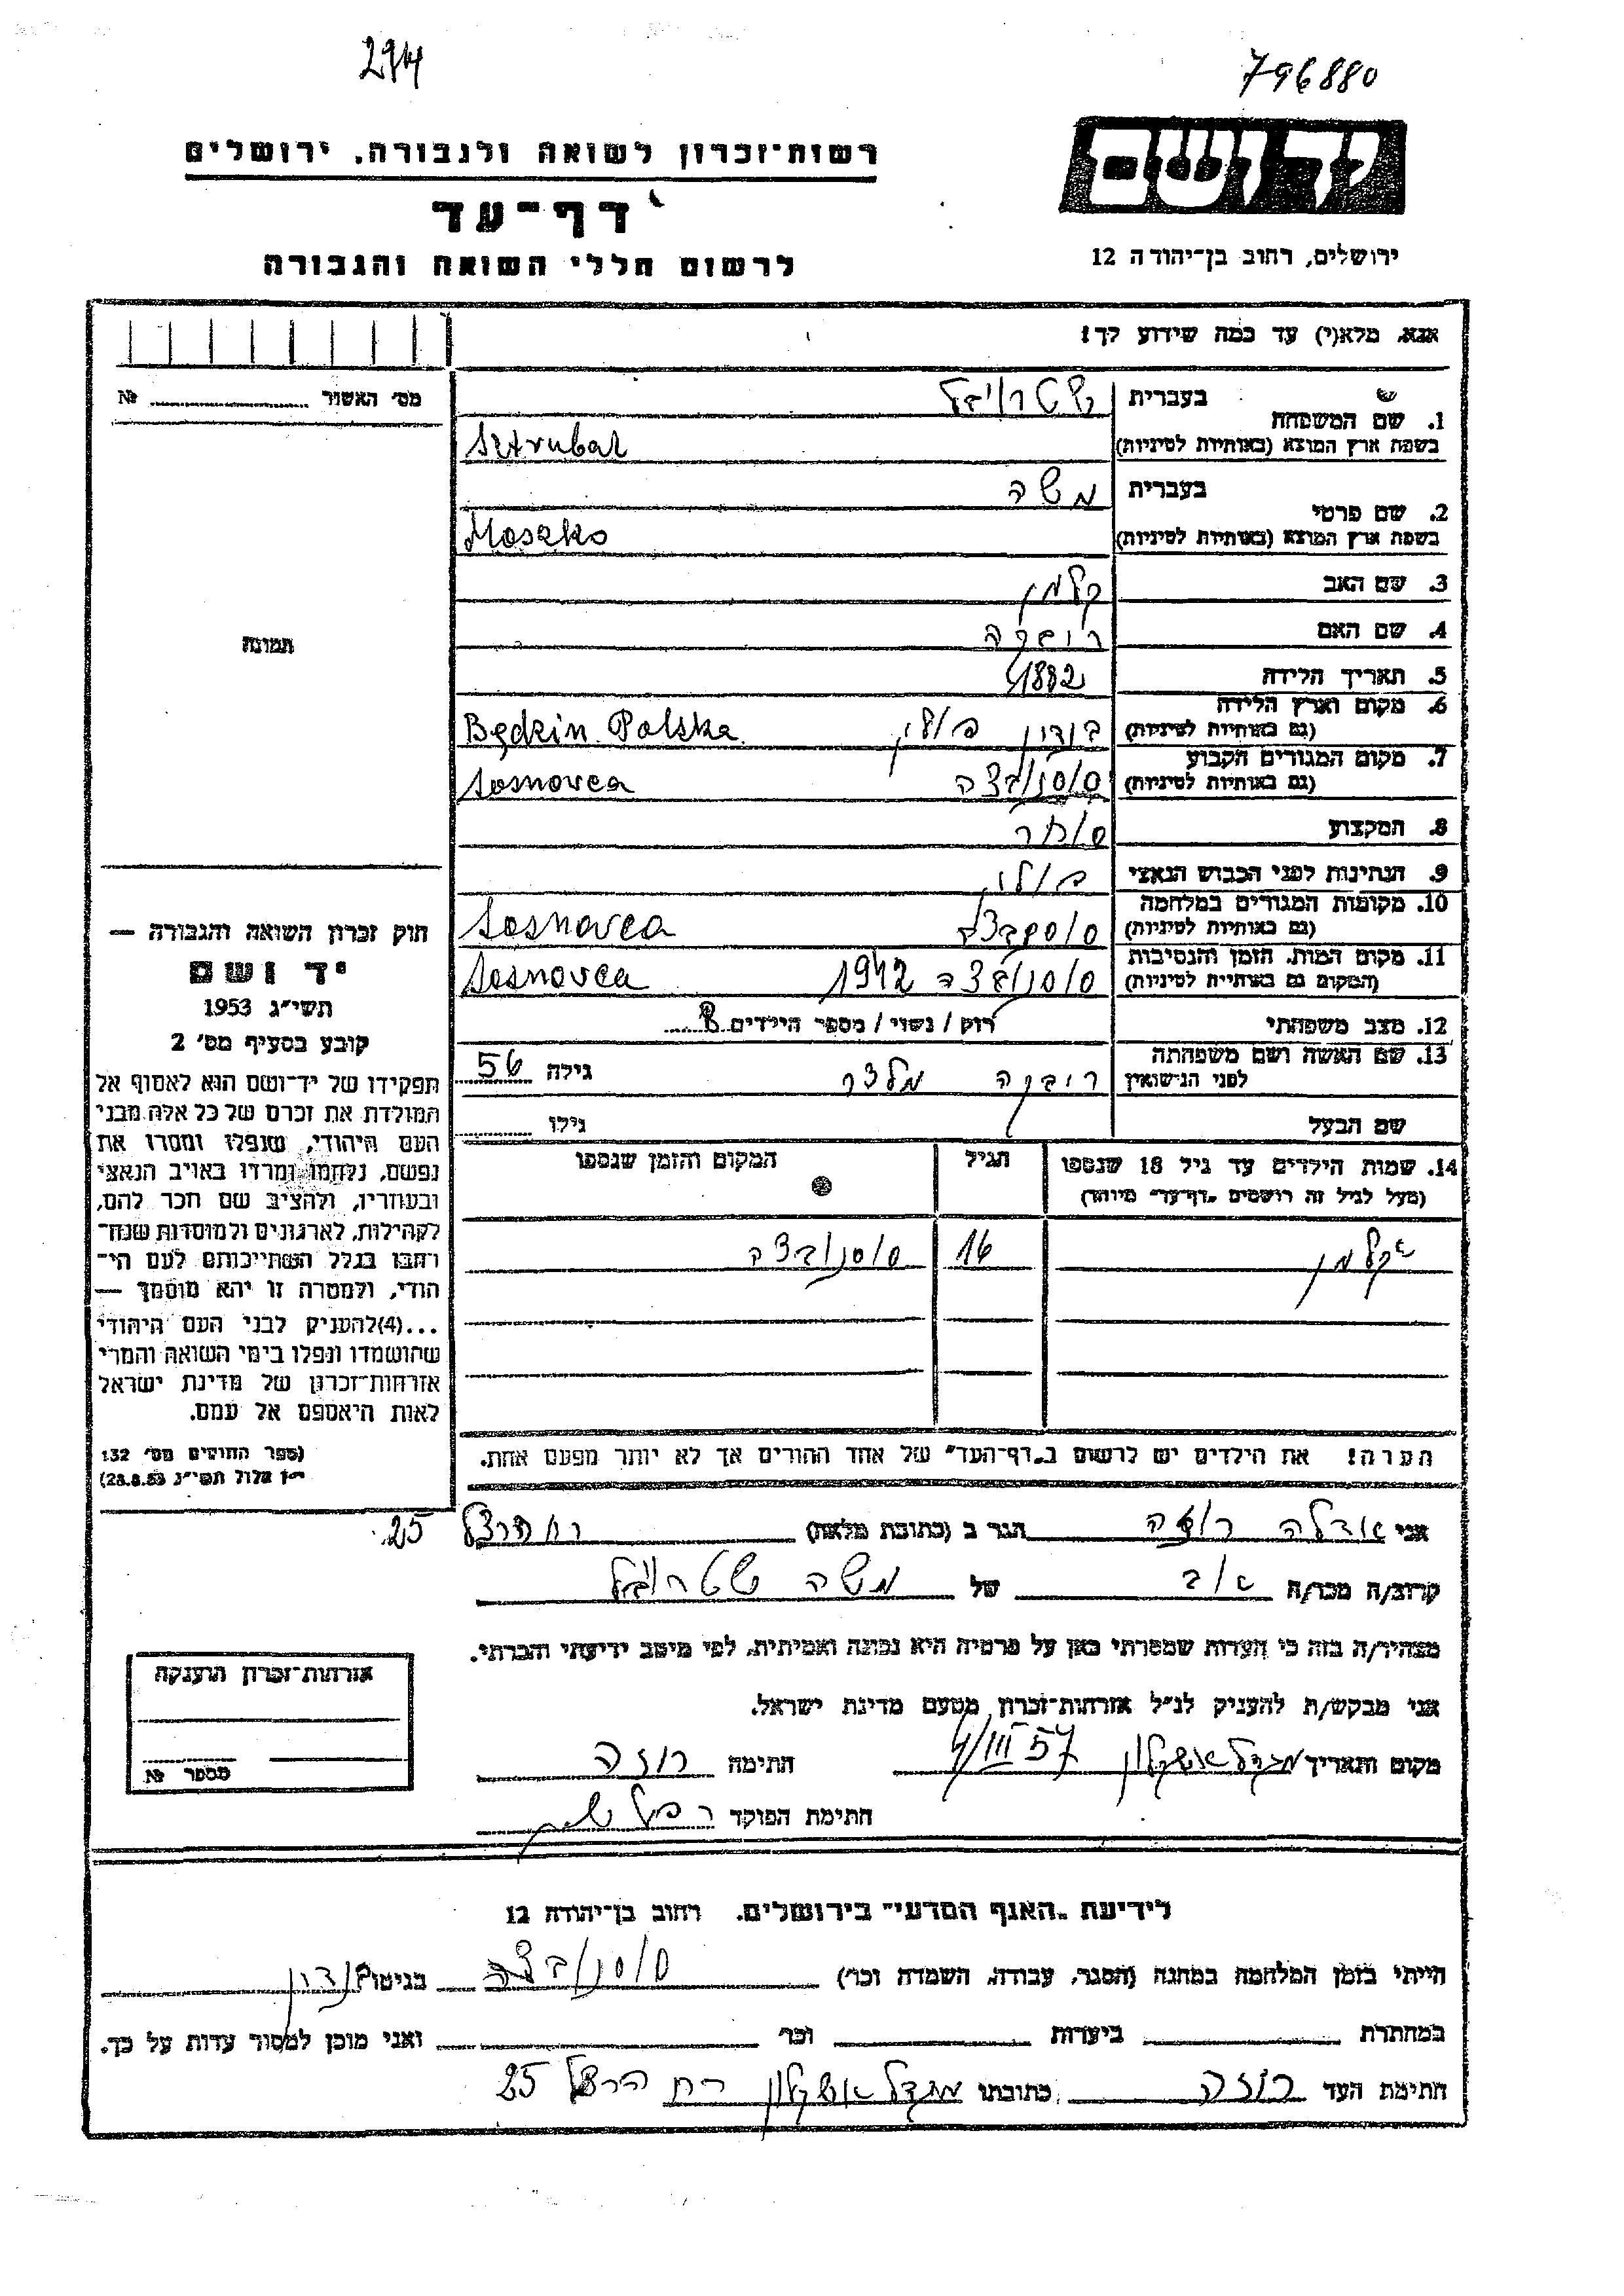 294
796880
יד ושם
רשות־זכרון לשואה ולגבורה, ירושלים
דף־עד
לרשום חללי השואה והגבורה
ירושלים, רחוב בן־יהודה 12
אנא, מלא(י) עד כמה שידוע לך!
מס׳ האשור ........ №
1. שם המשפחה
בעברית שטרובל
בשפת ארץ המוצא (באותיות לטיניות) Sztrubal
2. שם פרטי
בעברית משה
בשפת ארץ המוצא (באותיות לטיניות) Moszko
3. שם האב קלמן
4. שם האם ריבקה
5. תאריך הלידה 1882
6. מקום וארץ הלידה (גם באותיות לטיניות) בנדין פולין Będzin. Polska
7. מקום המגורים הקבוע (גם באותיות לטיניות) סוסנובצה Sosnovca
8. המקצוע סוחר
9. הנתינות לפני הכבוש הנאצי פולין
10. מקומות המגורים במלחמה (גם באותיות לטיניות) סוסנבצה Sosnovca
11. מקום המות, הזמן והנסיבות (המקום גם באותיות לטיניות) סוסנובצה 1942 Sosnovca
12. מצב משפחתי רוק / נשוי / מספר הילדים 8
13. שם האשה ושם משפחתה לפני הנישואין ריבקה מלצר גילה 56
שם הבעל גילו
14. שמות הילדים עד גיל 18 שנספו (מעל לגיל זה רושמים „דף־עד״ מיוחד) הגיל המקום והזמן שנספו
קלמן 16 סוסנובצה
הערה! את הילדים יש לרשום ב„דף־העד״ של אחד ההורים אך לא יותר מפעם אחת.
תמונה
חוק זכרון השואה והגבורה —
יד ושם
תשי״ג 1953
קובע בסעיף מס׳ 2
תפקידו של יד־ושם הוא לאסוף אל
המולדת את זכרם של כל אלה מבני
העם היהודי, שנפלו ומסרו את
נפשם, נלחמו ומרדו באויב הנאצי
ובעוזריו, ולהציב שם וזכר להם,
לקהילות, לארגונים ולמוסדות שנח־
רבו בגלל השתייכותם לעם הי־
הודי, ולמטרה זו יהא מוסמך —
...(4)להעניק לבני העם היהודי
שהושמדו ונפלו בימי השואה והמרי
אזרחות־זכרון של מדינת ישראל
לאות היאספם אל עמם.
(ספר החוקים מס׳ 132
י״ז אלול תשי״ג 28.8.53)
אני רוזה הגר ב (כתובת מלאה) רח הרצל 25
קרוב/ה מכר/ה אב של משה שטרובל
מצהיר/ה בזה כי העדות שמסרתי כאן על פרטיה היא נכונה ואמיתית, לפי מיטב ידיעתי והכרתי.
אני מבקש/ת להעניק לנ״ל אזרחות־זכרון מטעם מדינת ישראל.
מקום ותאריך מגדל אשקלון 4/III 57 חתימה רוזה
חתימת הפוקד
אזרחות־זכרון הוענקה
מספר №
לידיעת „האגף המדעי״ בירושלים. רחוב בן־יהודה 12
הייתי בזמן המלחמה במחנה (הסגר, עבודה, השמדה וכו׳) סוסנובצה בגיטו בנדין
במחתרת ביערות וכו׳ ואני מוכן למסור עדות על כך.
חתימת העד רוזה כתובתו מגדל אשקלון רח הרצל 25